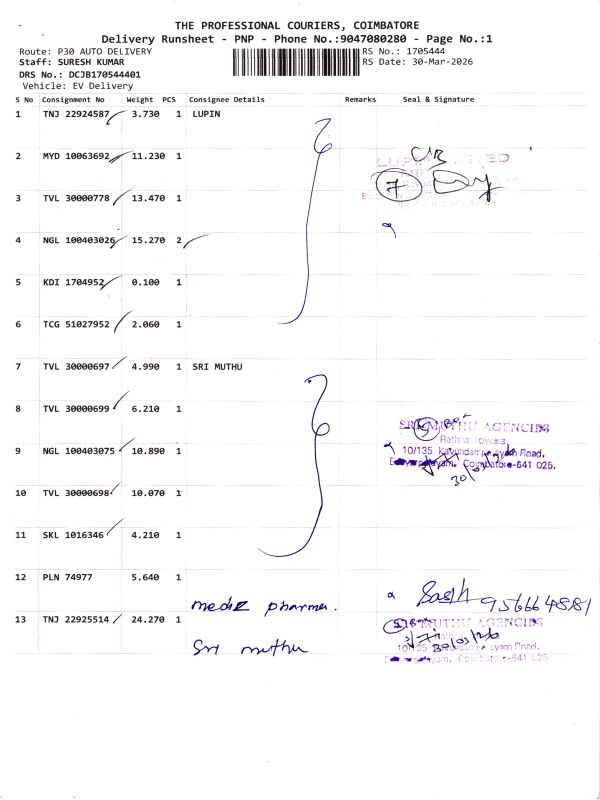 THE PROFESSIONAL COURIERS, COIMBATORE
Delivery Runsheet - PNP - Phone No.:9047080280 - Page No.:1
Route: P30 AUTO DELIVERY RS No.: 1705444
Staff: SURESH KUMAR RS Date: 30-Mar-2026
DRS No.: DCJB170544401
Vehicle: EV Delivery
S No Consignment No Weight PCS Consignee Details Remarks Seal & Signature
1 TNJ 22924587 3.730 1 LUPIN
2 MYD 10063692 11.230 1
7
3 TVL 30000778 13.470 1
4 NGL 100403026 15.270 2
5 KDI 1704952 0.100 1
6 TCG 51027952 2.060 1
7 TVL 30000697 4.990 1 SRI MUTHU
8 TVL 30000699 6.210 1
SRI MUTHU AGENCIES
Rathna Towers
9 NGL 100403075 10.890 1 10/135 Kavundampalayam Road,
Coimbatore-641 025.
30/03/26
10 TVL 30000698 10.070 1
11 SKL 1016346 4.210 1
12 PLN 74977 5.640 1
medz pharma. Sasth
13 TNJ 22925514 24.270 1 MUTHU AGENCIES
30/03/26
Sri muthu Road,
Coimbatore-641 025